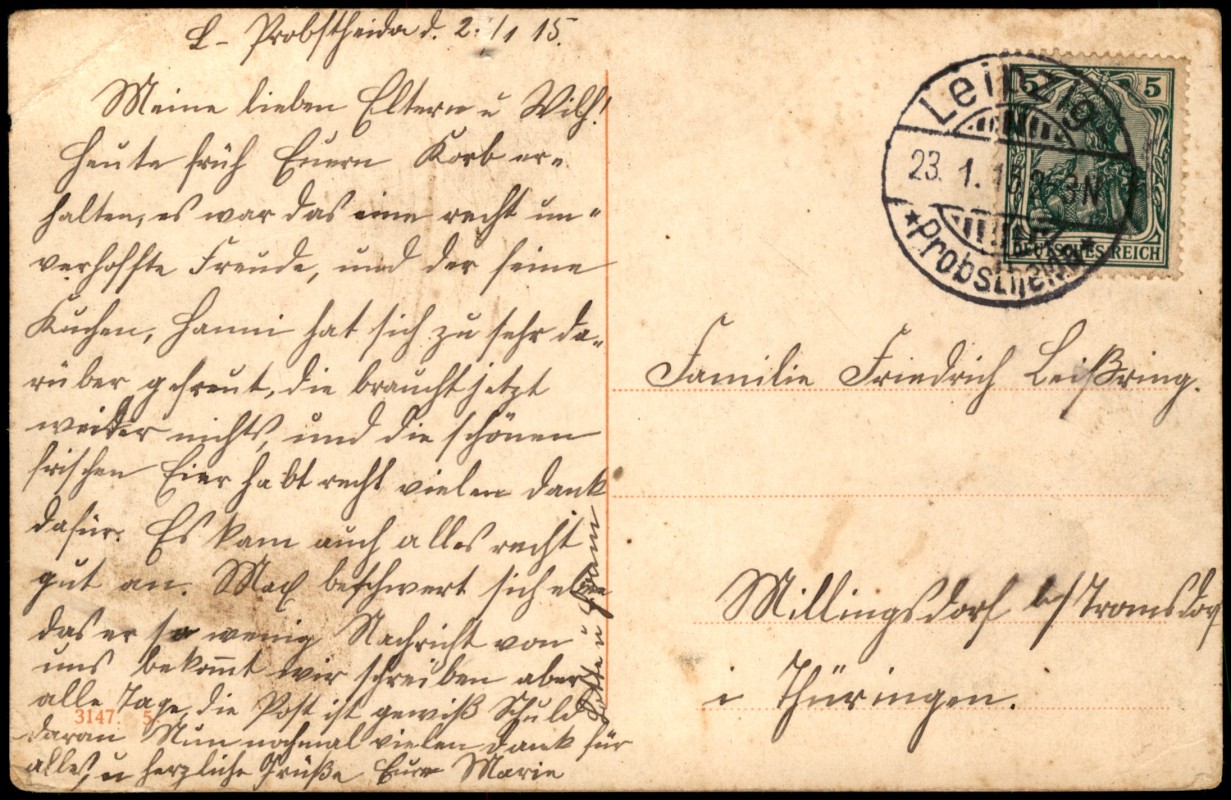 L- Probstheida d. 2. /1 15.
Meine lieben Eltern u Wilh!
Heute früh Euern Korb er-
halten, es war das eine recht un-
verhoffte Freude, und der feine
Kuchen, Hanni hat sich zu sehr da-
rüber gefreut, die braucht jetzt
weider nichts, und die schönen
frischen Eier habt recht vielen Dank
dafür. Es kam auch alles recht
gut an. Max beschwert sich eben
das er so wenig Nachricht von
uns bekomt wir schreiben aber
alle Tage, die Post ist gewiß Schuld
daran Nun nochmal vielen Dank für
alles, u herzliche Grüße Eure Marie
u Hanni
3147. 5.
Leipzig
23. 1. 15. 3N
*Probstheida*
5 5
DEUTSCHES REICH
Familie Friedrich Leißring.
Millingsdorf b/Tromsdorf
i Thüringen.